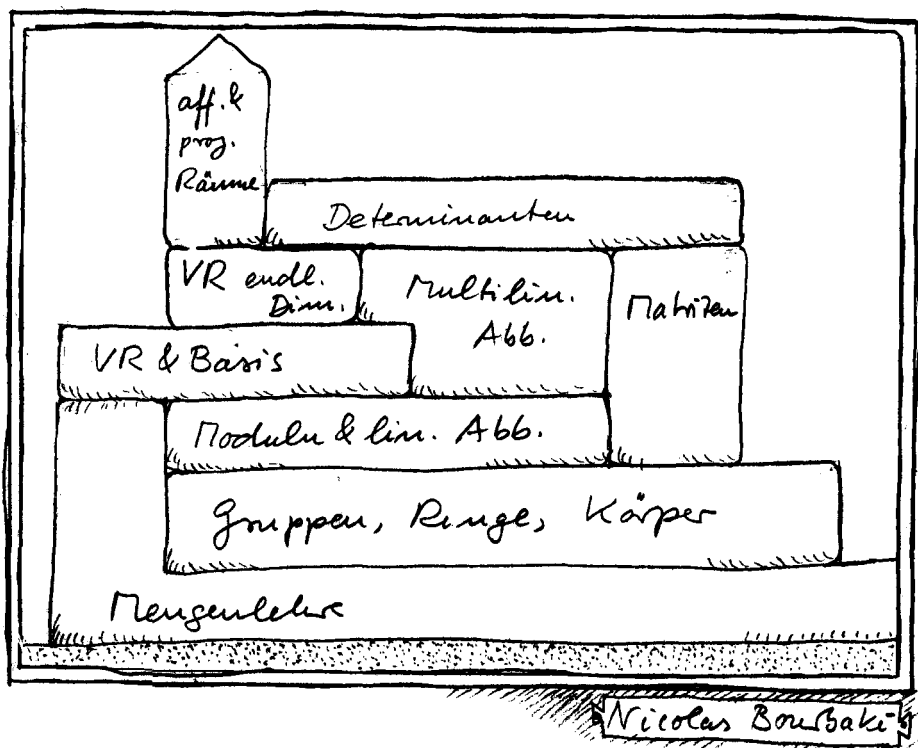 aff. &
proj.
Räume
Determinanten
VR endl.
Dim.
Multilin.
Abb.
Matrizen
VR & Basis
Moduln & lin. Abb.
Gruppen, Ringe, Körper
Mengenlehre
Nicolas Bourbaki